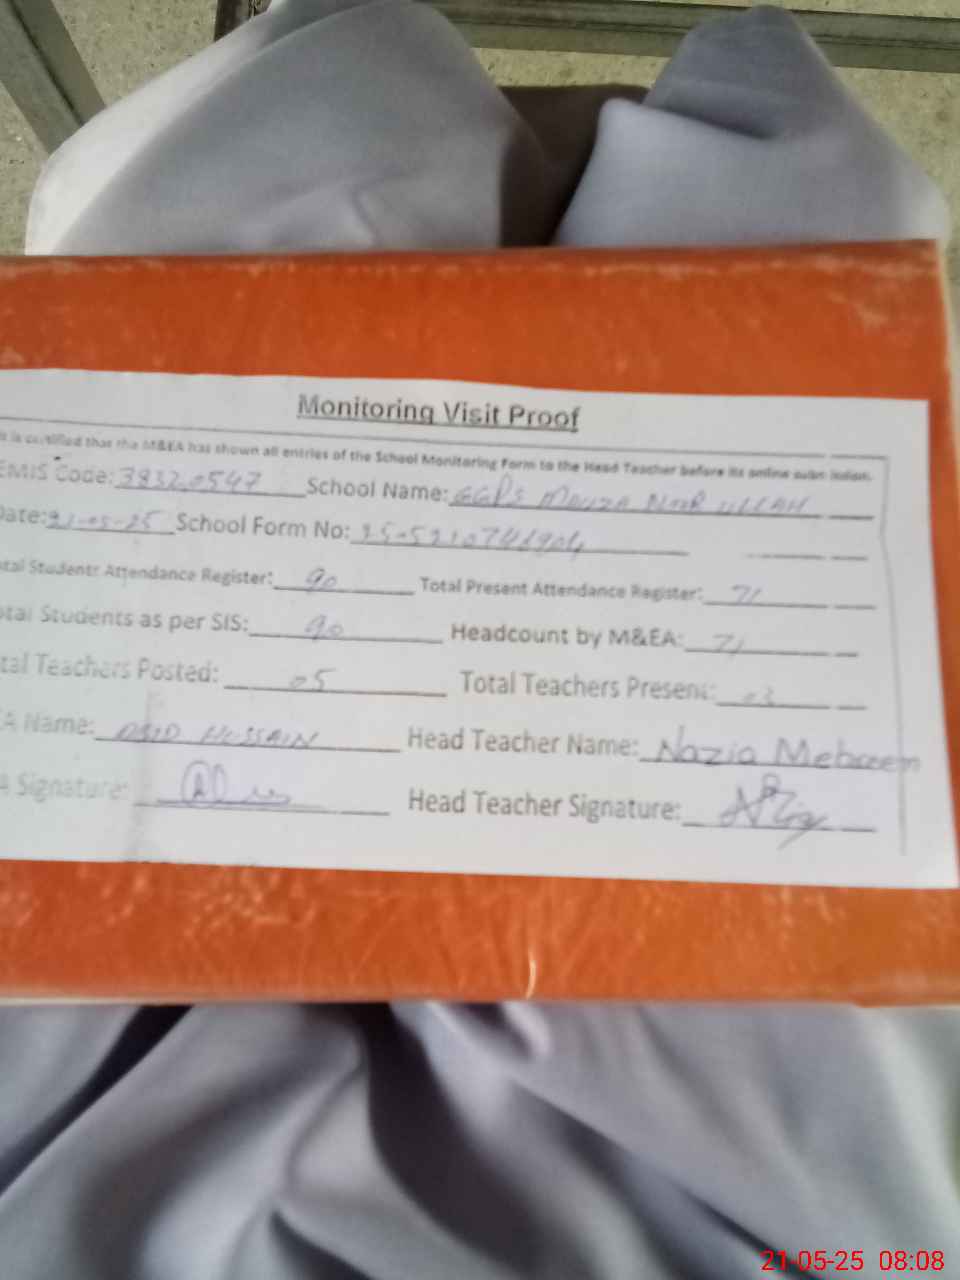 Monitoring Visit Proof
It is certified that the M&EA has shown all entries of the School Monitoring Form to the Head Teacher before its online
EMIS Code: 38320547 School Name: GGPS MOUZA NOOR ULLAH
Date: 21-05-25 School Form No:
tal Students Attendance Register: 90 Total Present Attendance Register: 71
otal Students as per SIS: 90 Headcount by M&EA: 71
tal Teachers Posted: 05 Total Teachers Present: 03
EA Name: HUSSAIN Head Teacher Name: Nazia
A Signature: Head Teacher Signature:
21-05-25 08:08